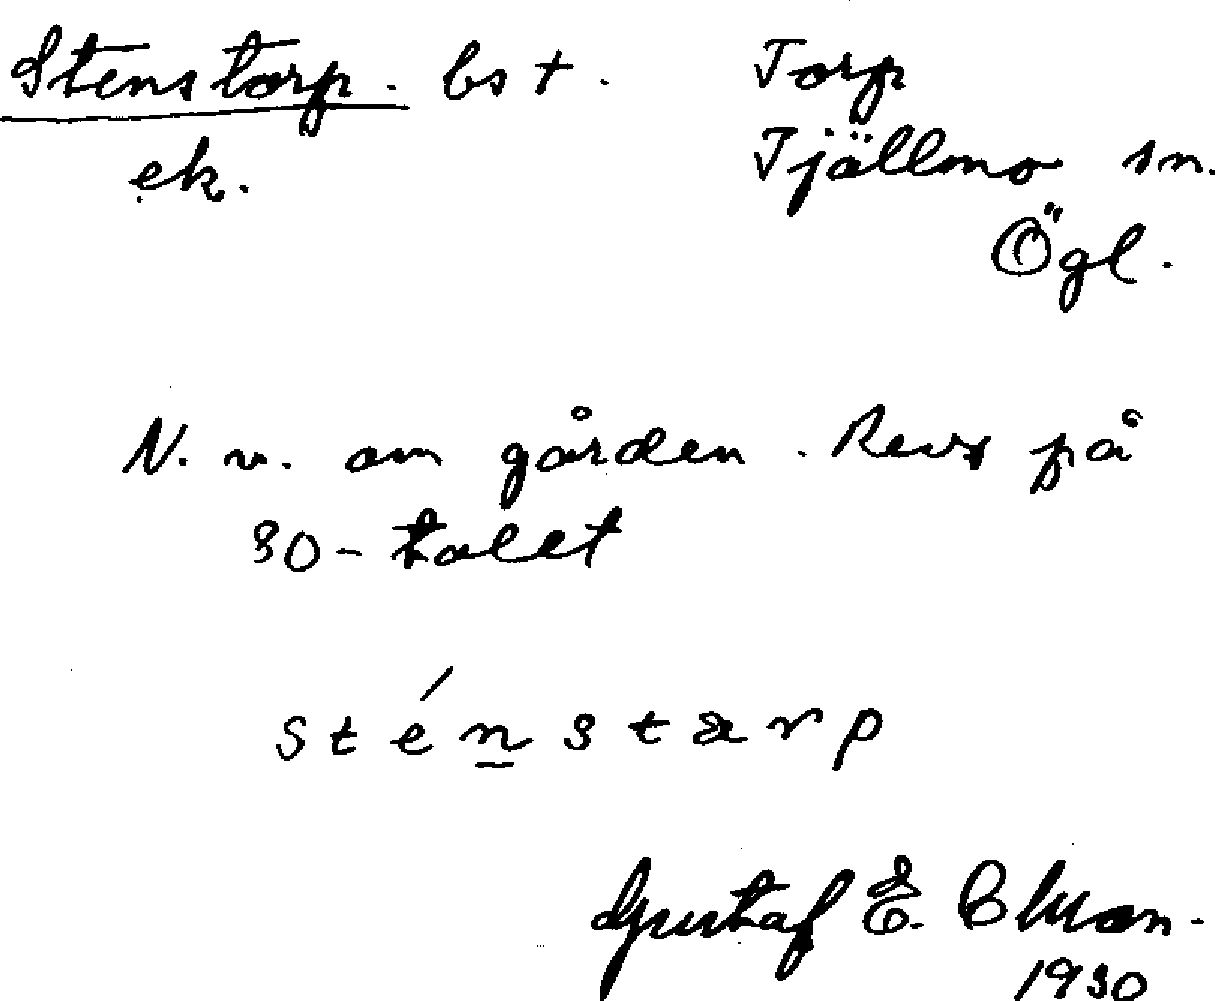 Stenstorp. bst. Torp
ek. Tjällmo sn.
Ögl.
N. v. om gården. Revs på
30-talet
sténstarp
Gustaf E.
1930